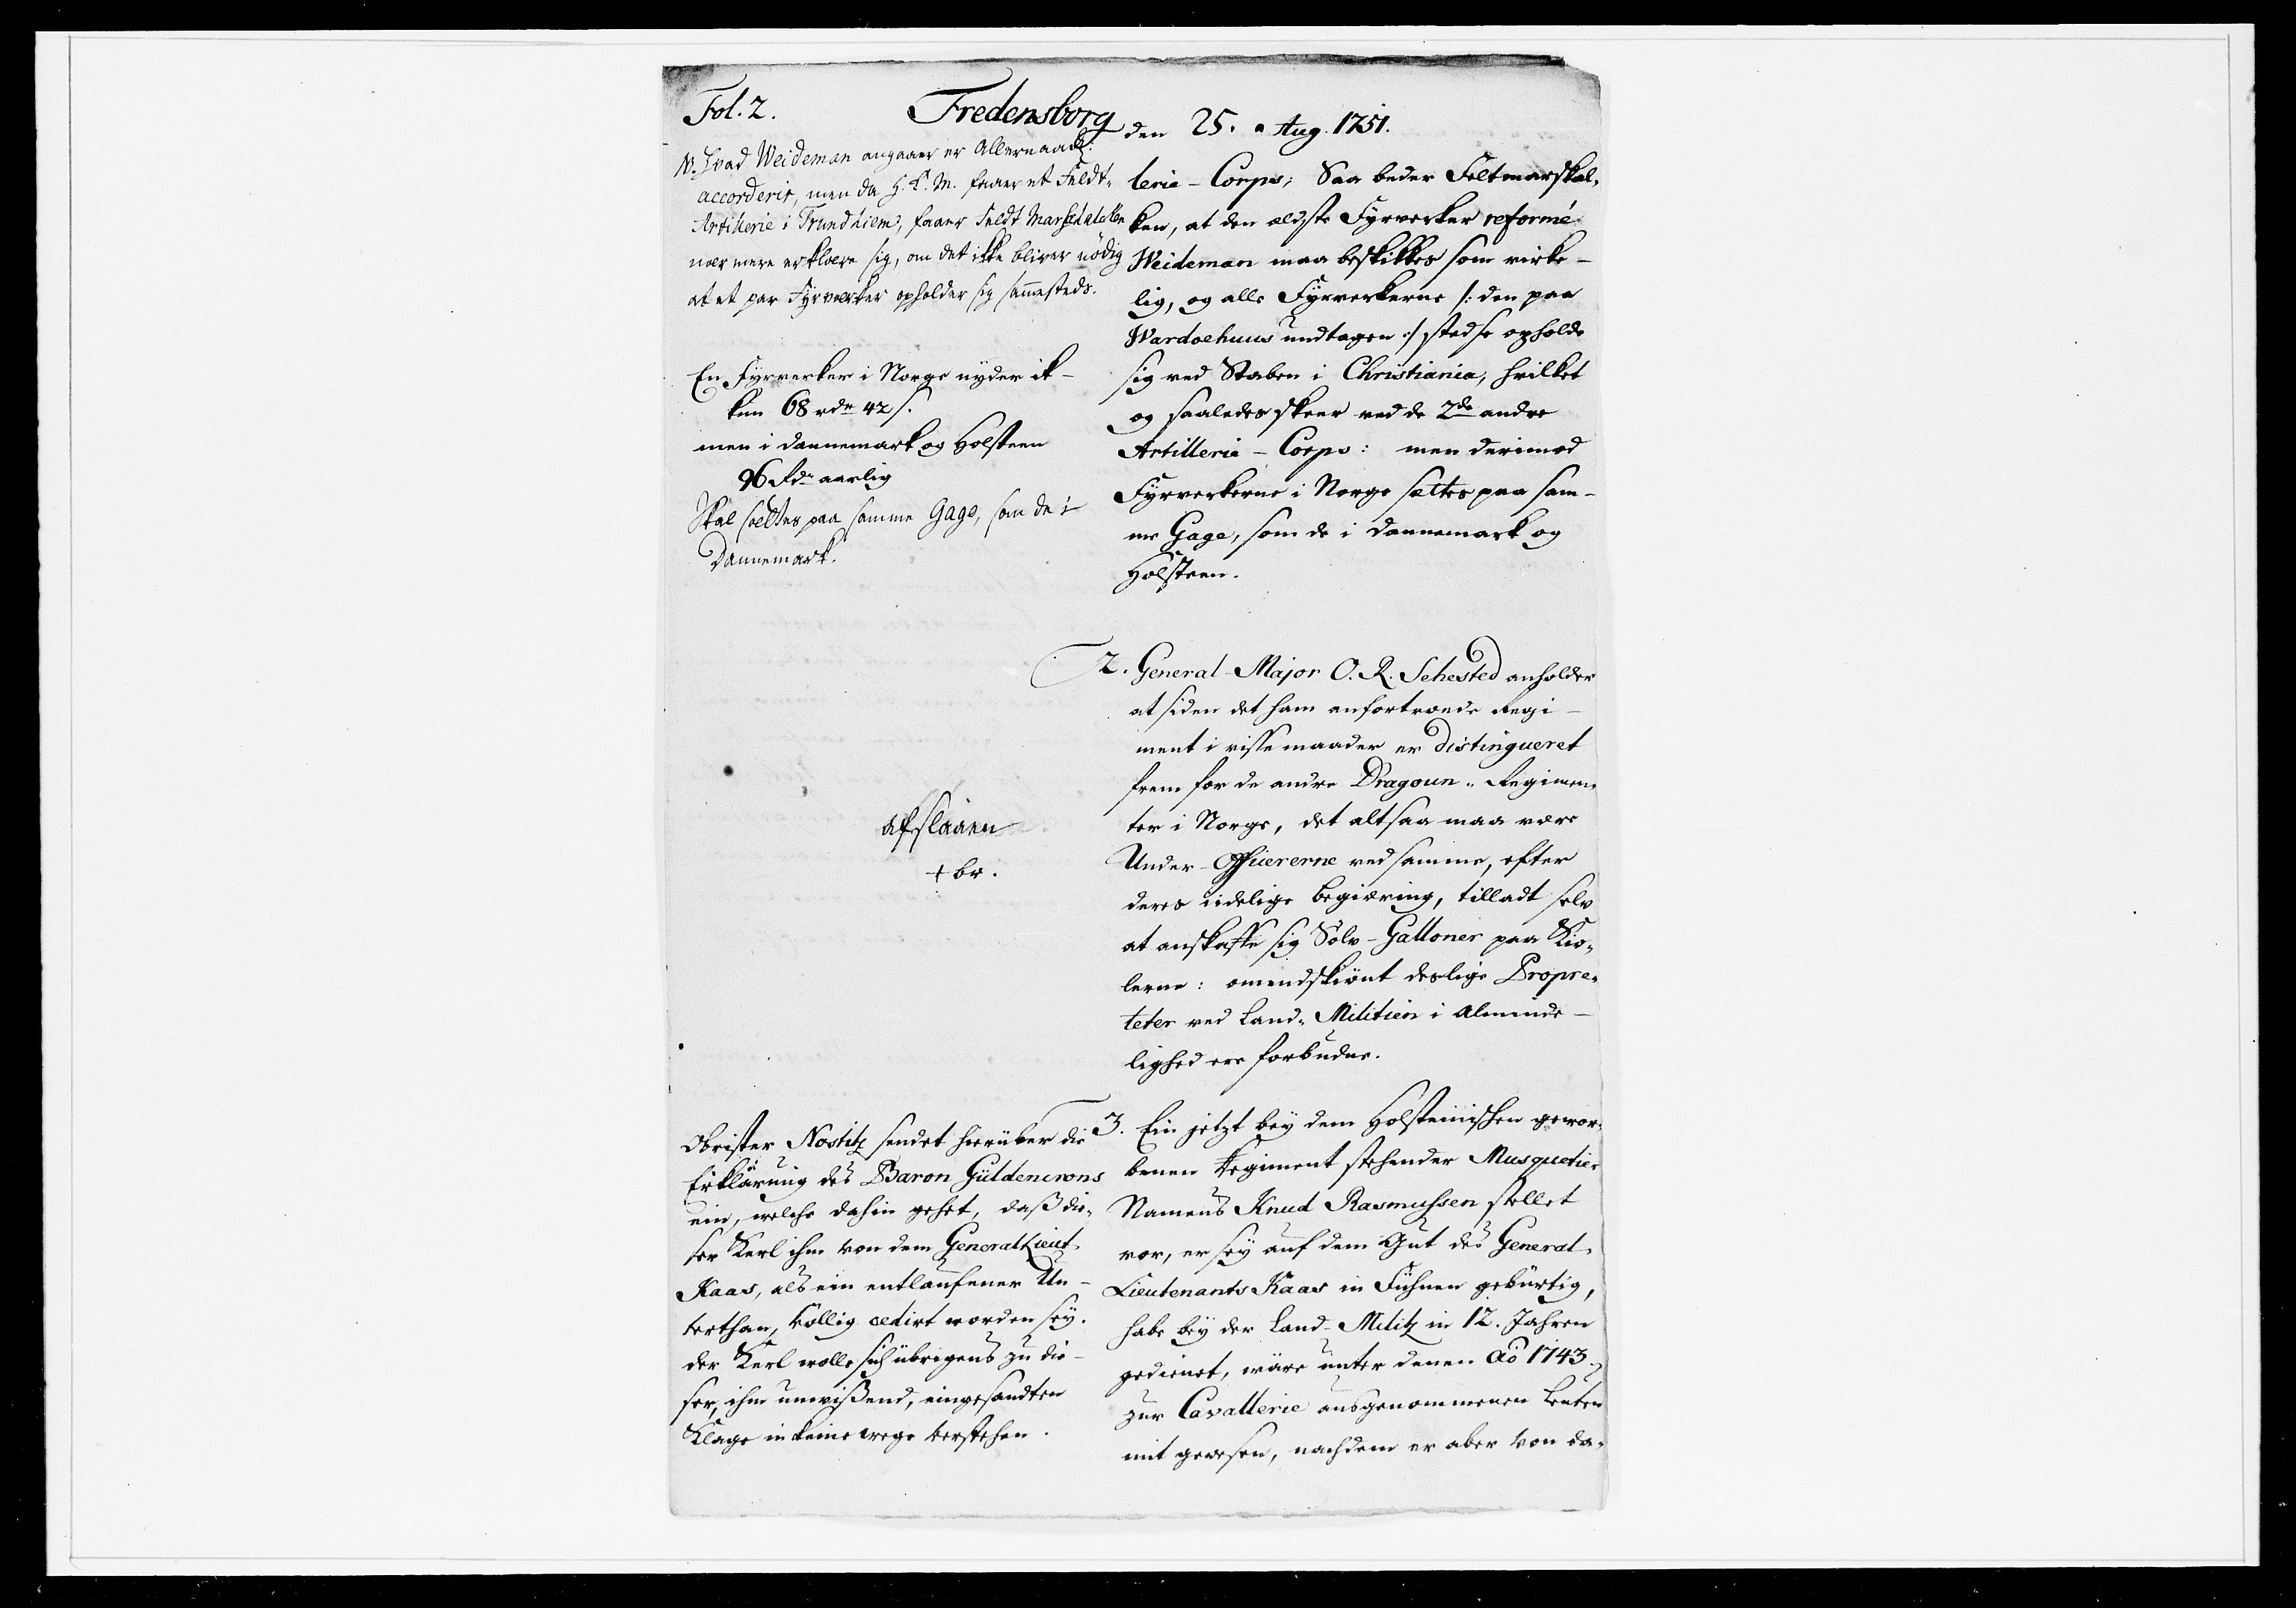 Fol. 2.
Fredensborg den 25. Aug. 1751.
N. Hvad Weideman angaaer er Allernaad:
accorderit, men da H. K. M. faaer et Feldt-
Artillerie i Trundhiem, faaer Feldt Marschalcken
nærmere erklære sig, om det ikke bliver nödig
at et par Fyrværker opholder sig sammesteds.
En Fyrverker i Norge nyder ik-
kun 68 rdr 42 s.
men i Dannemark og Holsteen
96 Rdr aarlig
Skal sættes paa samme Gage, som de i
Dannemark.
lerie-Corps; Saa beder Feltmarskal-
ken, at den ældste Fyrverker reformé
Weideman maa beskikkes som virke-
lig, og alle Fyrverkerne /: den paa
Wardoehuus undtagen :/ stedse opholde
sig ved Staben i Christiania, hvilket
og saaledes skeer ved de 2de andre
Artillerie-Corps: men derimod
Fyrverkerne i Norge sættes paa sam-
me Gage, som de i Dannemark og
Holsteen.
2. General-Major O. R. Sehested anholder
at siden det ham anfortroede Regi-
ment i visse maader er distingueret
frem for de andre Dragoun-Regimen-
ter i Norge, det altsaa maa være
Under-Officererne ved samme, efter
deres iidelige begiæring, tilladt selv
at anskaffe sig Sölv-Galloner paa Kio-
lerne: omendskiönt deslige Propre-
teter ved Land-Militien i Alminde-
lighed ere forbudne.
Afslaaen
+ br.
Obrister Nostitz sendet hierüber die
Erklärung des Baron Güldencrons
ein, welche dahin gehet, daß die-
ser Kerl ihm von dem GeneralLieut.
Kaas, als ein entlaufener Un-
terthan, völlig cedirt worden sey.
der Kerl wolle sich übrigens zu die-
ser, ihm unwißend, eingesandten
Klage in keine wege verstehen.
3. Ein jetzt bey dem Holsteinischen gewor-
benen Regiment stehender Musquetier
Namens Knud Rasmussen stellet
vor, er sey auf dem Gut des General-
Lieutenants Kaas in Fühnen gebürtig,
habe bey der Land-Militz in 12. Jahren
gedienet, wäre unter denen Aö 1743
zur Cavallerie ausgenommenen Leuten
mit gewesen, nachdem er aber von da-